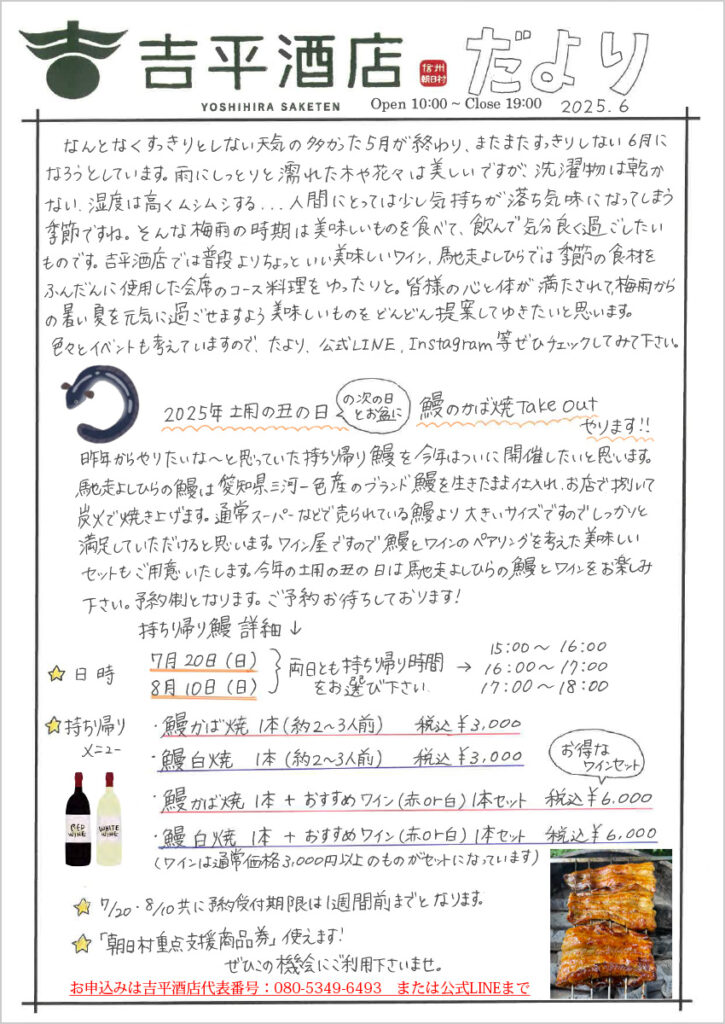 吉平酒店 信州朝日村 だより
YOSHIHIRA SAKETEN Open 10:00 ~ Close 19:00 2025.6
なんとなくすっきりとしない天気の多かった5月が終わり、またまたすっきりしない6月に
なろうとしています。雨にしっとりと濡れた木や花々は美しいですが、洗濯物は乾か
ない、湿度は高くムシムシする...人間にとっては少し気持ちが落ち気味になってしまう
季節ですね。そんな梅雨の時期は美味しいものを食べて、飲んで気分良く過ごしたい
ものです。吉平酒店では普段よりちょっといい美味しいワイン、馳走よしひらでは季節の食材を
ふんだんに使用した会席のコース料理をゆったりと。皆様の心と体が満たされて梅雨から
の暑い夏を元気に過ごせますよう美味しいものをどんどん提案してゆきたいと思います。
色々とイベントも考えていますので、たより、公式LINE、Instagram等ぜひチェックしてみて下さい。
2025年 土用の丑の日 の次の日とお盆に 鰻のかば焼 Take Out
やります!!
昨年からやりたいな〜と思っていた持ち帰り鰻を今年はついに開催したいと思います。
馳走よしひらの鰻は愛知県三河一色産のブランド鰻を生きたまま仕入れ、お店で捌いて
炭火で焼き上げます。通常スーパーなどで売られている鰻より大きいサイズですのでしっかりと
満足していただけると思います。ワイン屋ですので鰻とワインのペアリングを考えた美味しい
セットもご用意いたします。今年の土用の丑の日は馳走よしひらの鰻とワインをお楽しみ
下さい。予約制となります。ご予約お待ちしております!
持ち帰り鰻 詳細↓
日時
7月20日(日)
8月10日(日)
両日とも持ち帰り時間
をお選び下さい。
→
15:00〜16:00
16:00〜17:00
17:00〜18:00
持ち帰り
メニュー
・鰻かば焼 1本(約2〜3人前) 税込¥3,000
・鰻白焼 1本(約2〜3人前) 税込¥3,000
お得な
ワインセット
・鰻かば焼 1本+おすすめワイン(赤or白)1本セット 税込¥6,000
・鰻白焼 1本+おすすめワイン(赤or白)1本セット 税込¥6,000
(ワインは通常価格3,000円以上のものがセットになっています)
RED
WINE
WHITE
WINE
7/20・8/10共に予約受付期限は1週間前までとなります。
「朝日村重点支援商品券」使えます!
ぜひこの機会にご利用下さいませ。
お申込みは吉平酒店代表番号：080-5349-6493 または公式LINEまで